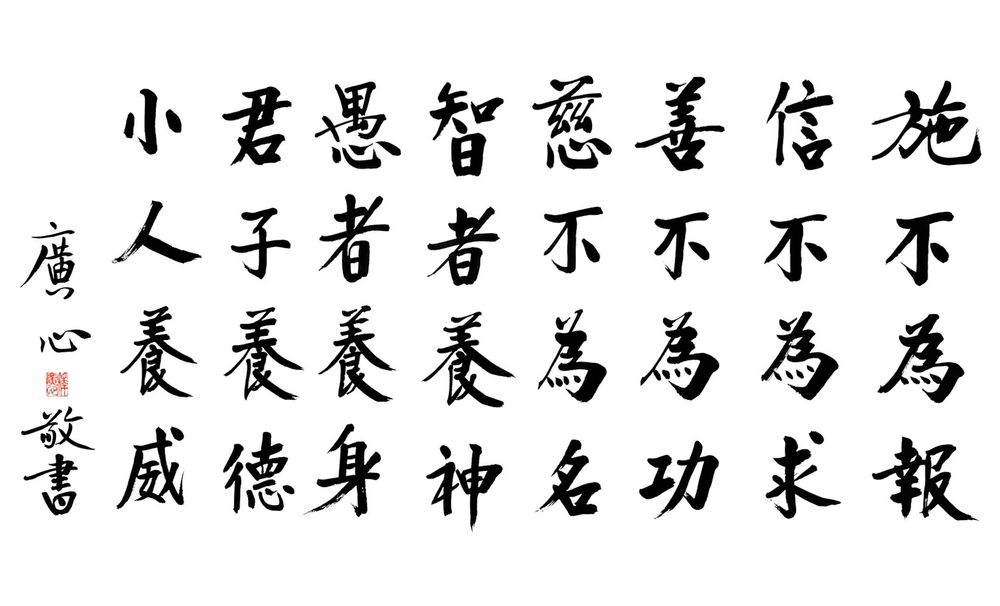 施不為報
信不為求
善不為功
慈不為名
智者養神
愚者養身
君子養德
小人養威
廣心敬書